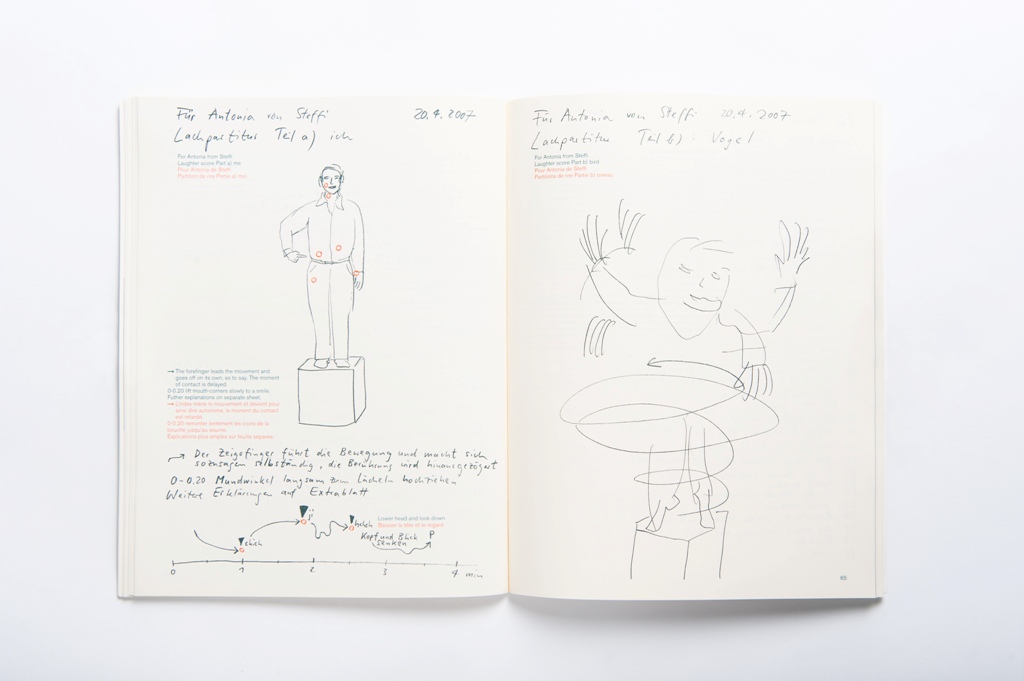 Für Antonia von Steffi 20.4.2007
Lachpartitur Teil a) ich
For Antonia from Steffi
Laughter score Part a) me
Pour Antonia de Steffi
Partition de rire Partie a) moi
→ The forefinger leads the movement and
goes off on its own, so to say. The moment
of contact is delayed.
0-0.20 lift mouth-corners slowly to a smile.
Futher explanations on separate sheet.
→ L'index mène le mouvement et devient pour
ainsi dire autonome, le moment du contact
est retardé.
0-0.20 remonter lentement les coins de la
bouche jusqu'au sourire.
Explications plus amples sur feuille séparée.
→ Der Zeigefinger führt die Bewegung und macht sich
sozusagen selbständig, die Berührung wird hinausgezögert
0-0.20 Mundwinkel langsam zum Lächeln hochziehen
Weitere Erklärungen auf Extrablatt
Lower head and look down
Baisser la tête et le regard
Kopf und Blick
senken
P
0 1 2 3 4 min
Für Antonia von Steffi 20.4.2007
Lachpartitur Teil b): Vogel
For Antonia from Steffi
Laughter score Part b) bird
Pour Antonia de Steffi
Partition de rire Partie b) oiseau
65